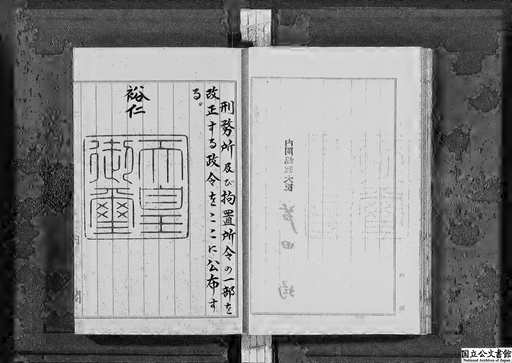 刑務所及び拘置所令の一部を
改正する政令をここに公布す
る。
裕仁
天皇
御璽
内閣総理大臣 芦田均
国立公文書館
National Archives of Japan